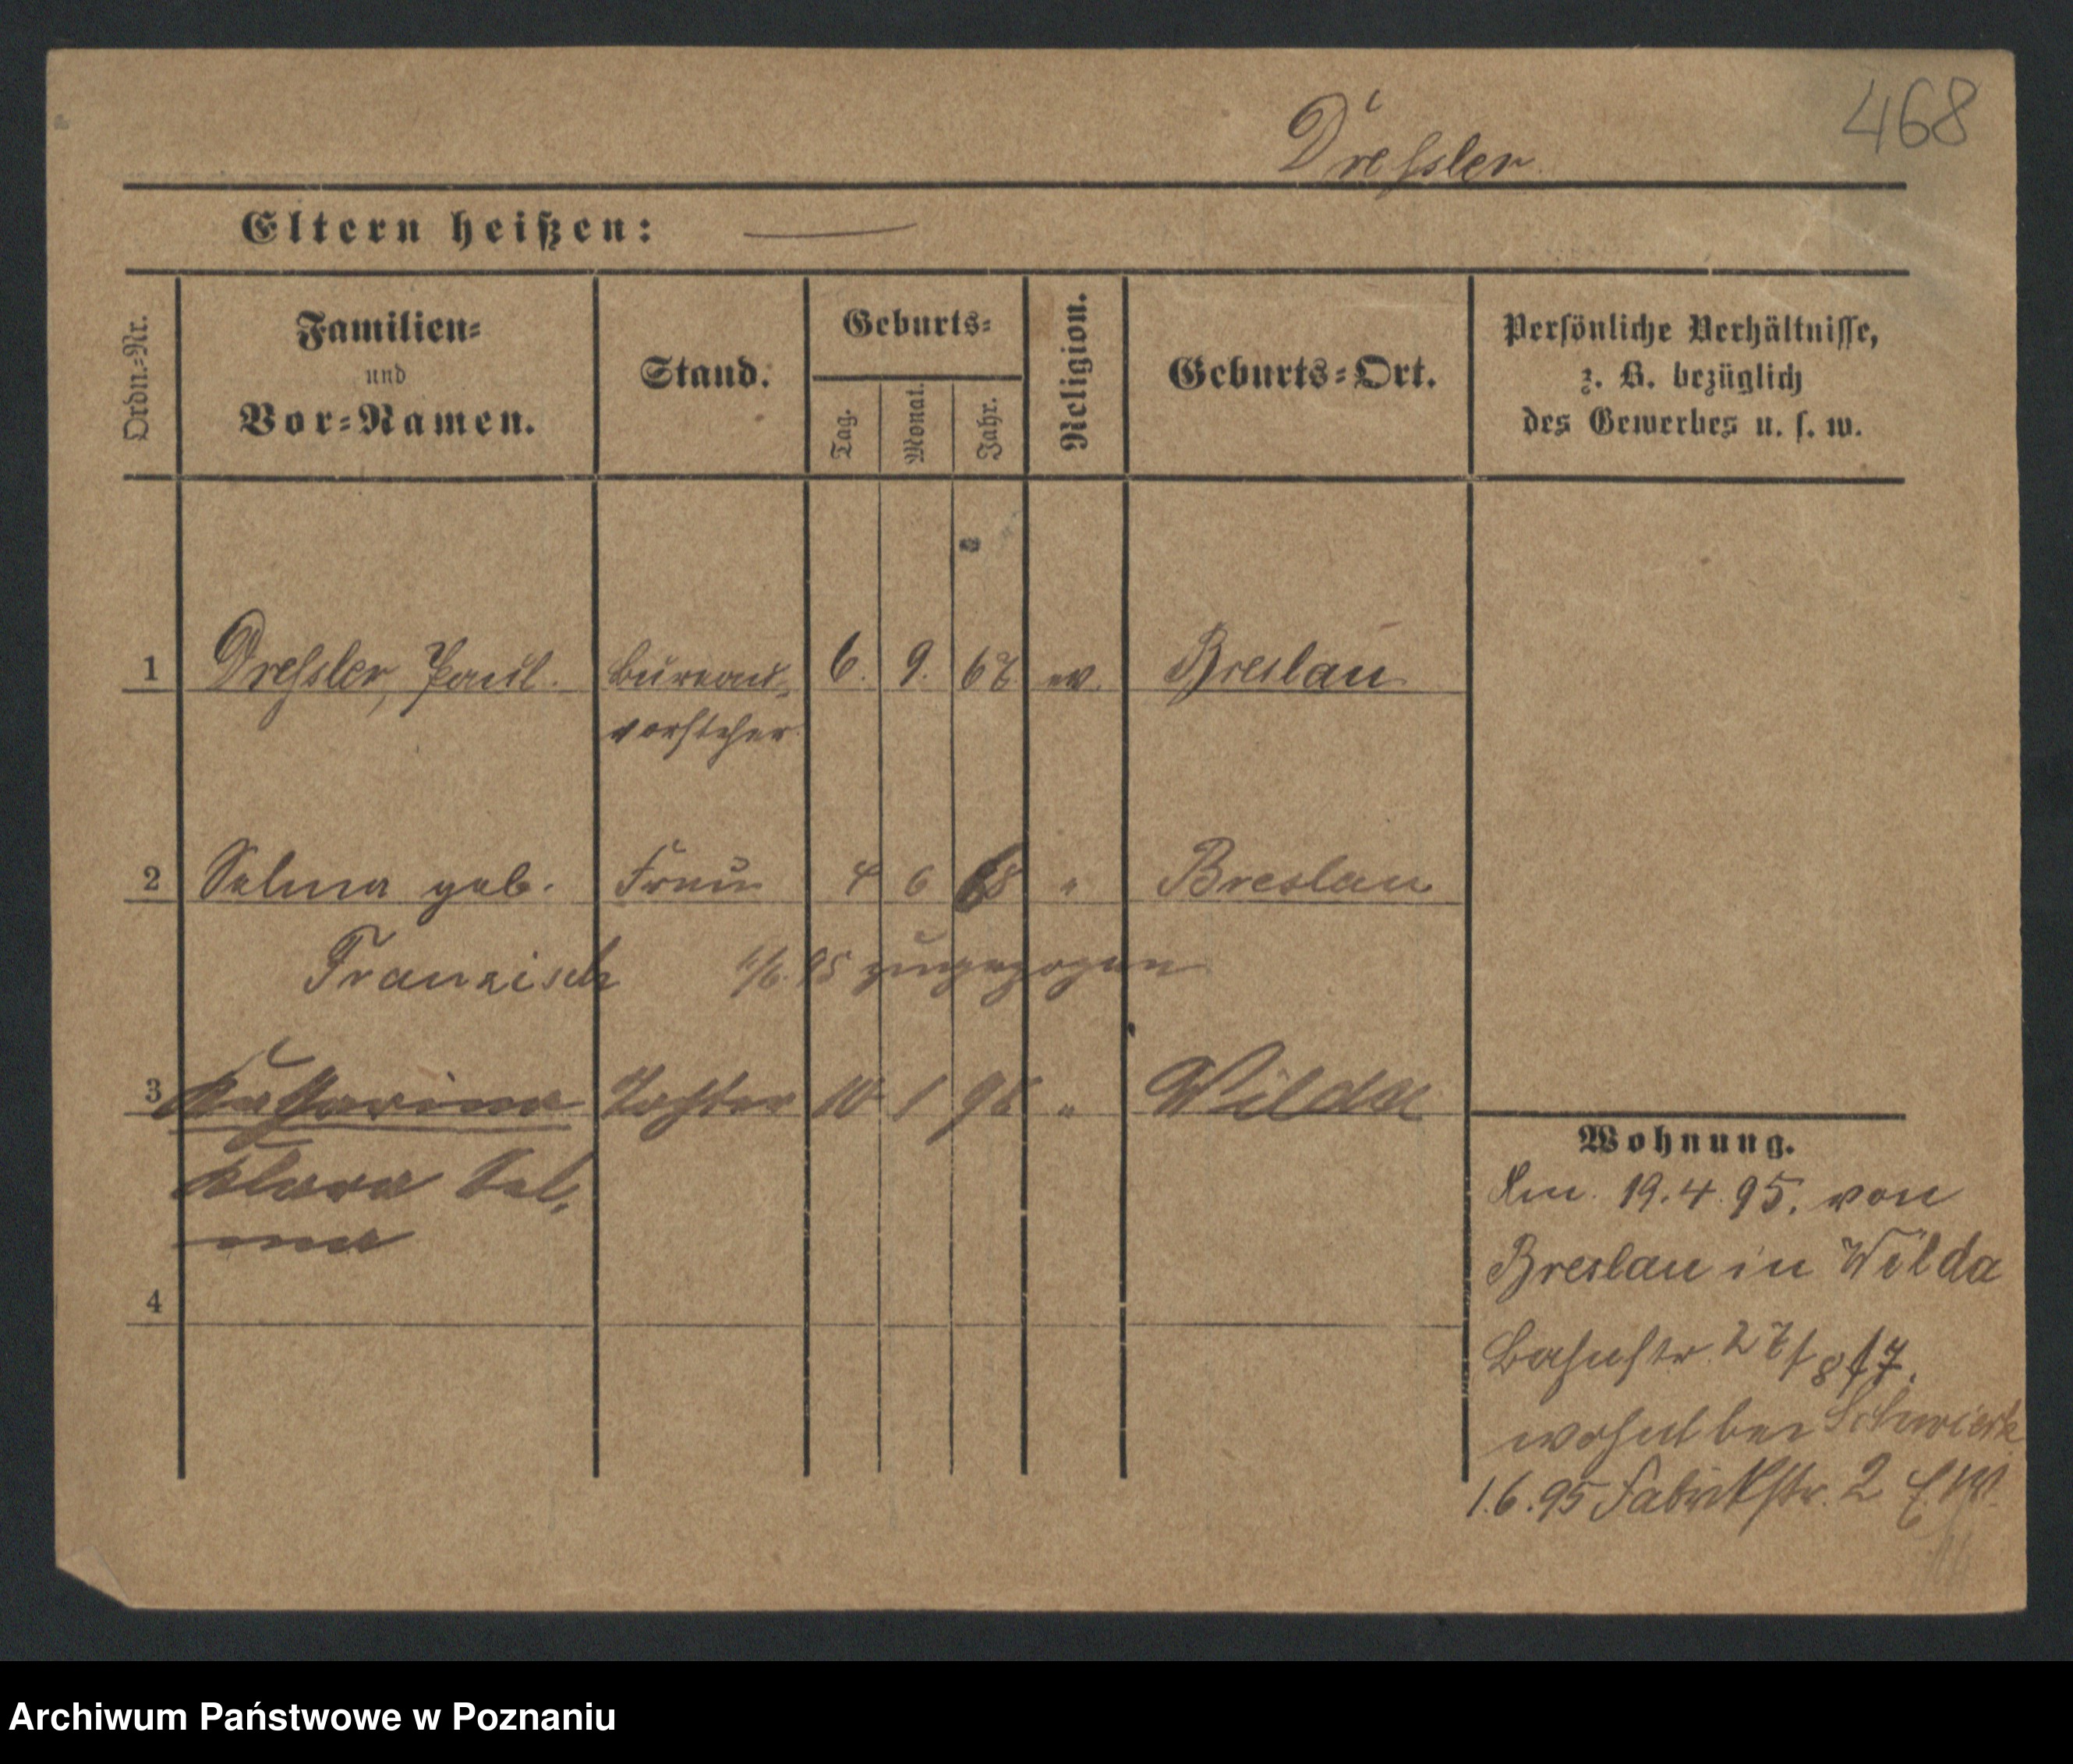 468
Dressler
Eltern heißen: —
Ordn.-Nr.
Familien-
und
Vor-Namen.
Stand.
Geburts-
Tag.
Monat.
Jahr.
Religion.
Geburts-Ort.
Persönliche Verhältnisse,
z. B. bezüglich
des Gewerbes u. s. w.
1 Dressler, Paul. Bureau- 6. 9. ev. Breslau
vorsteher
2 Selma geb. Frau 4 6 68 " Breslau
Franzisch 1/6. 95 zugezogen
3 Katharina Tochter 10 1 96 " Wilda
Klara Sel-
ma
4
Wohnung.
Am 19.4.95. von
Breslau in Wilda
Bahnstr.
wohnt bei
1.6.95 Fabrikstr. 2
Archiwum Państwowe w Poznaniu